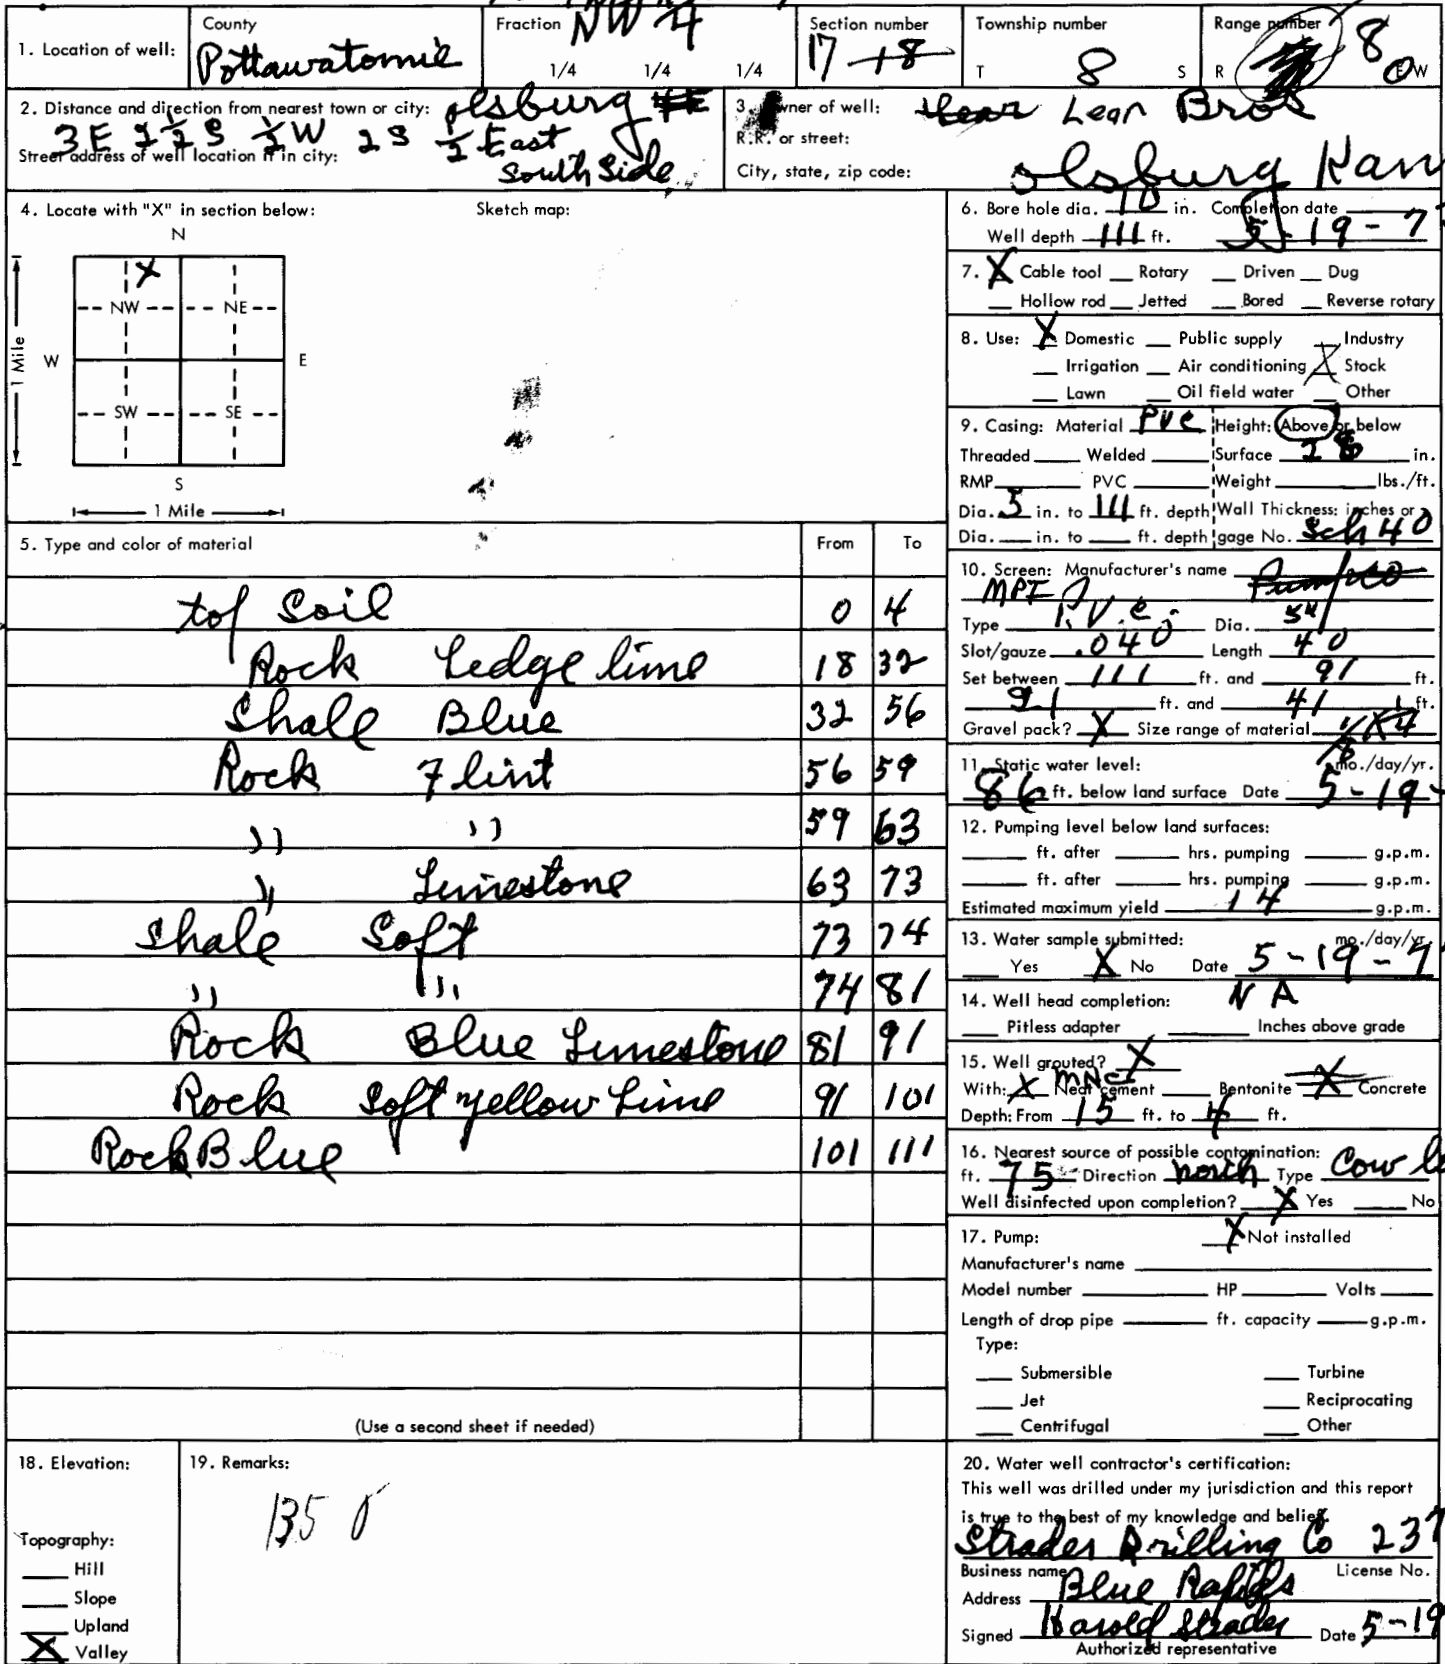 County
Fraction NW 4
Section number
Township number
Range number
1. Location of well:
Pottawatomie
1/4 1/4 1/4
17 18
T 8 S
R 8 E W
2. Distance and direction from nearest town or city: Olsburg
3E 1 1/2 S 1/2 W 2S 1/2 East
Street address of well location if in city:
South Side
3. Owner of well: Lear Bros
R.R. or street:
City, state, zip code:
Olsburg Kan
4. Locate with "X" in section below:
Sketch map:
N
X
NW NE
W E
1 Mile
SW SE
S
1 Mile
5. Type and color of material From To
top Soil 0 4
Rock Ledge lime 18 32
Shale Blue 32 56
Rock Flint 56 59
)) )) 59 63
)) Limestone 63 73
Shale Soft 73 74
)) )) 74 81
Rock Blue Limestone 81 91
Rock Soft yellow Lime 91 101
Rock Blue 101 111
(Use a second sheet if needed)
18. Elevation:
Topography:
Hill
Slope
Upland
X Valley
19. Remarks:
135 0
6. Bore hole dia. 10 in. Completion date
Well depth 111 ft. 5-19-7
7. X Cable tool Rotary Driven Dug
Hollow rod Jetted Bored Reverse rotary
8. Use: X Domestic Public supply Industry
Irrigation Air conditioning X Stock
Lawn Oil field water Other
9. Casing: Material PVC Height: Above or below
Threaded Welded Surface in.
RMP PVC Weight lbs./ft.
Dia. 5 in. to 111 ft. depth Wall Thickness: inches or
Dia. in. to ft. depth gage No. Sch 40
10. Screen: Manufacturer's name
MPI
Type P.V.C. Dia. 5"
Slot/gauze .040 Length 40
Set between 111 ft. and 91 ft.
91 ft. and 41 ft.
Gravel pack? X Size range of material
11. Static water level: mo./day/yr.
86 ft. below land surface Date 5-19-
12. Pumping level below land surfaces:
ft. after hrs. pumping g.p.m.
ft. after hrs. pumping g.p.m.
Estimated maximum yield 14 g.p.m.
13. Water sample submitted: mo./day/yr.
Yes X No Date 5-19-7
14. Well head completion: NA
Pitless adapter Inches above grade
15. Well grouted? X
With: X Neat cement Bentonite X Concrete
Depth: From 15 ft. to 4 ft.
16. Nearest source of possible contamination:
ft. 75 Direction north Type Cow
Well disinfected upon completion? X Yes No
17. Pump: X Not installed
Manufacturer's name
Model number HP Volts
Length of drop pipe ft. capacity g.p.m.
Type:
Submersible Turbine
Jet Reciprocating
Centrifugal Other
20. Water well contractor's certification:
This well was drilled under my jurisdiction and this report
is true to the best of my knowledge and belief.
Strader Drilling Co 237
Business name License No.
Address Blue Rapids
Signed Harold Strader Date 5-19
Authorized representative